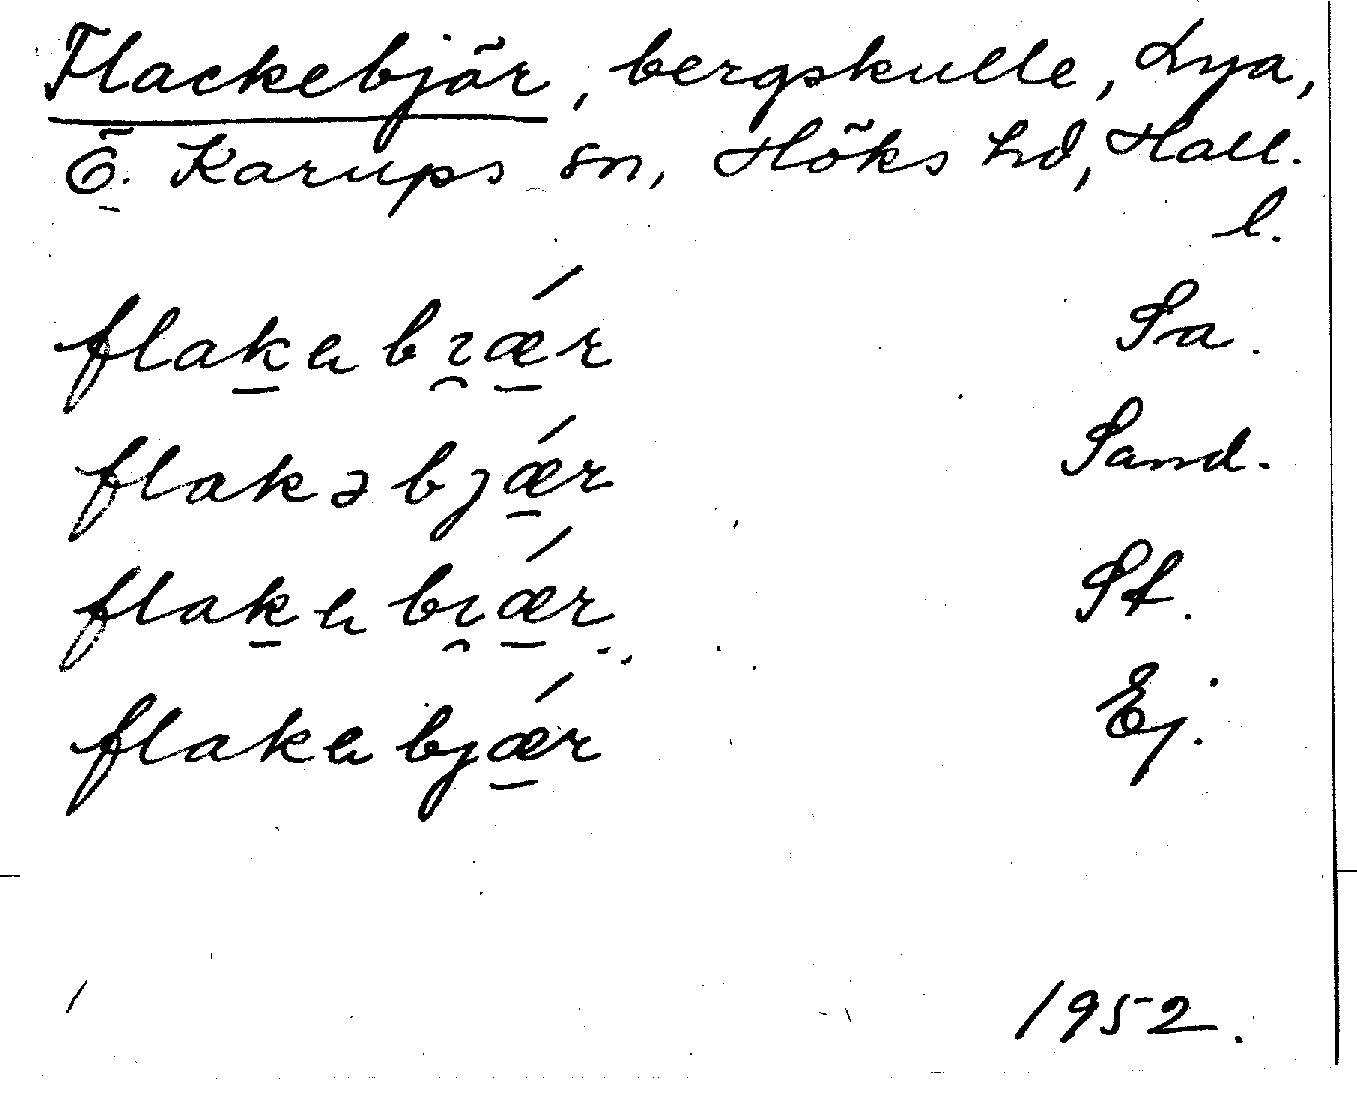 Flackebjär, bergskulle, Lya,
Ö. Karups sn, Höks hd, Hall.
l.
flakabɪ̯ǽr Sa.
flakəbjǽr Sand.
flakabɪ̯ǽr. St.
flakabjǽr Ej.
1952.